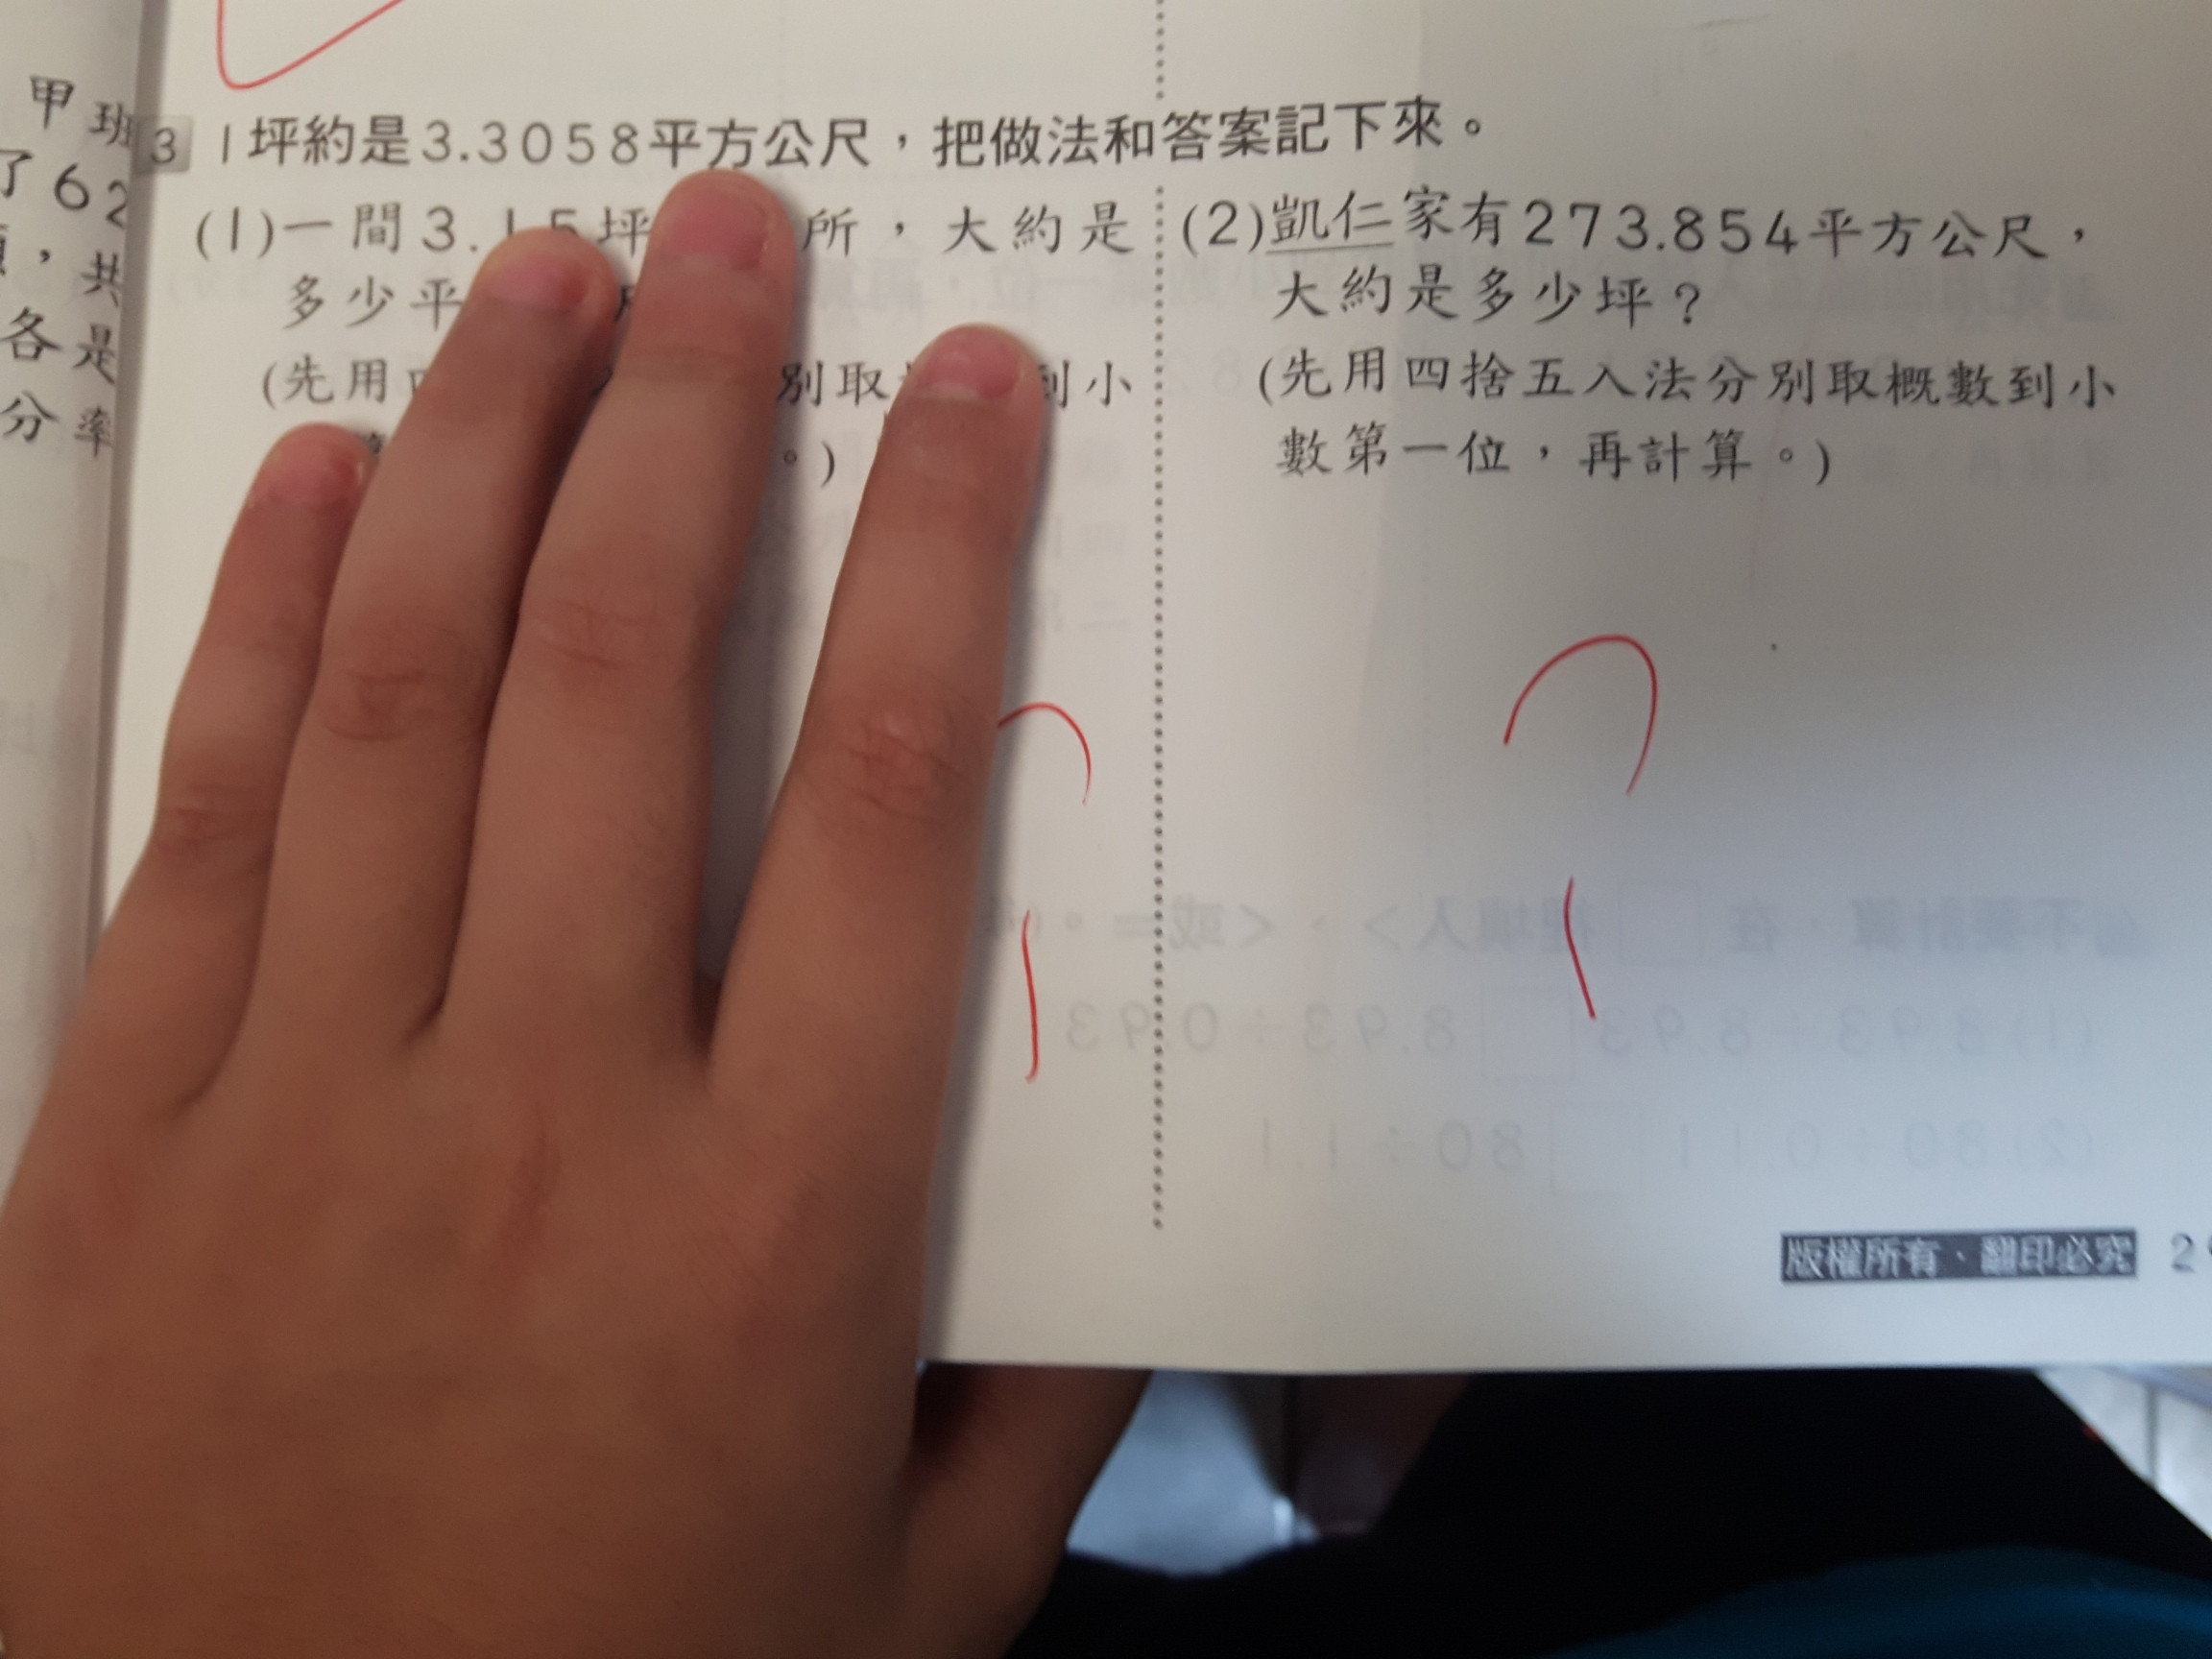 甲班
了62
，共
各是
分率
3 1坪約是3.3058平方公尺，把做法和答案記下來。
(1)一間3.15坪 所，大約是
多少平
(先用 別取 到小
。)
(2)凱仁家有273.854平方公尺，
大約是多少坪？
(先用四捨五入法分別取概數到小
數第一位，再計算。)
版權所有、翻印必究 2